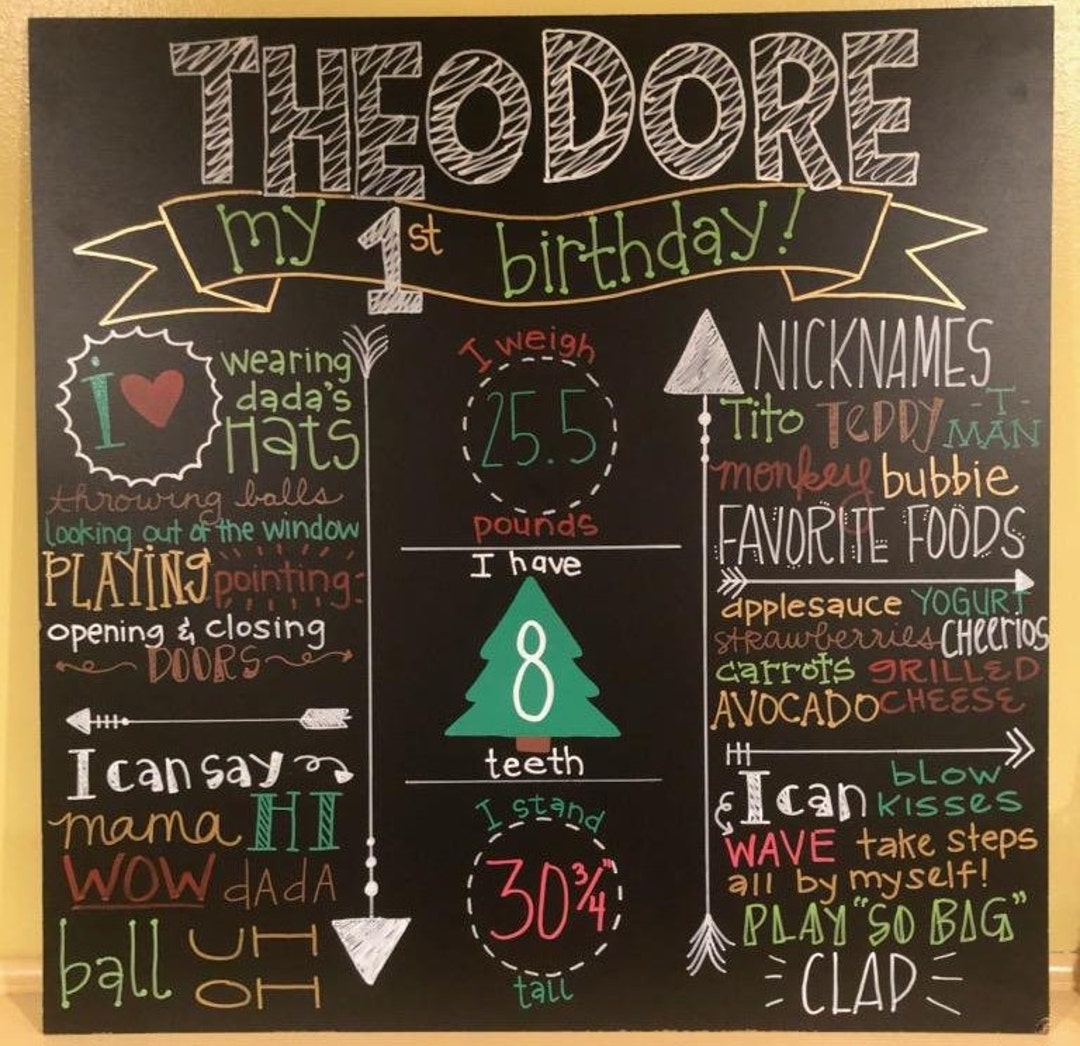 THEODORE
my 1st birthday!
I ♥
wearing
dada's
Hats
throwing balls
looking out of the window
PLAYING pointing
opening & closing
DOORS
I can say
mama HI
WOW dAdA
ball UH
OH
I weigh
25.5
pounds
I have
8
teeth
I stand
30 3/4"
tall
NICKNAMES
Tito TEDDY -T-
MAN
monkey bubbie
FAVORITE FOODS
applesauce YOGURT
strawberries CHEERIOS
carrots GRILLED
AVOCADO CHEESE
I can bLOW
KISSES
WAVE take steps
all by myself!
PLAY "SO BIG"
CLAP